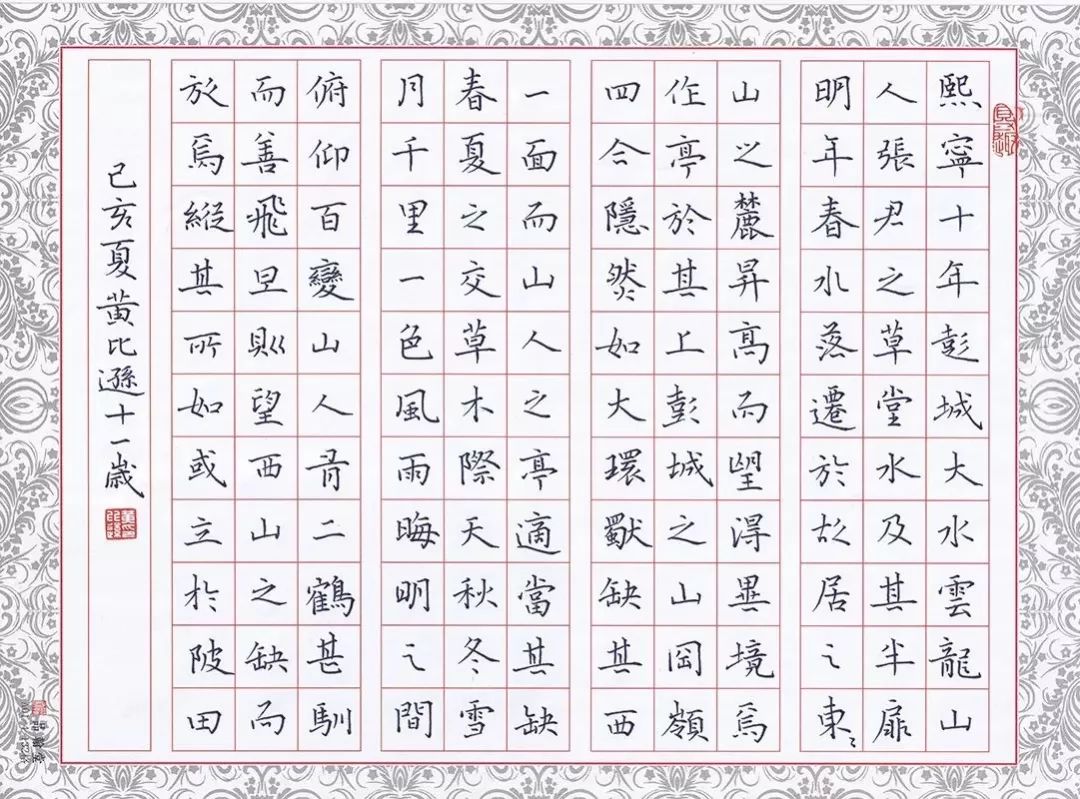 熙寧十年彭城大水雲龍山
人張君之草堂水及其半扉
明年春水落遷於故居之東〻
山之麓昇高而望得異境焉
作亭於其上彭城之山岡嶺
四合隱然如大環獸缺其西
一面而山人之亭適當其缺
春夏之交草木際天秋冬雪
月千里一色風雨晦明之間
俯仰百變山人有二鶴甚馴
而善飛旦則望西山之缺而
放焉縱其所如或立於陂田
己亥夏黃比遜十一歲